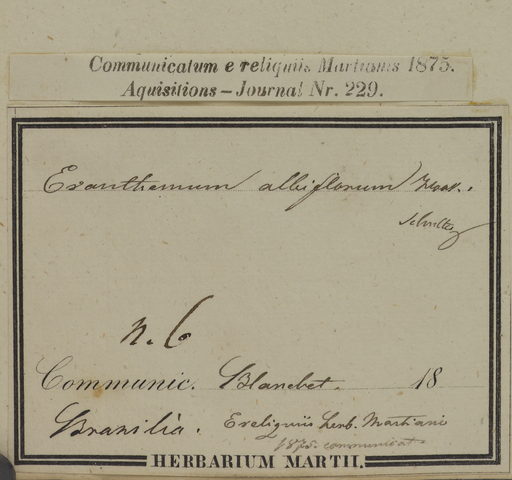 Communicatum e reliquiis Martianis 1875.
Aquisitions – Journal Nr. 229.
Eranthemum albiflorum Hook.
Schultz
n. 6
Communic. Blanchet. 18
Brasilia. E reliquiis herb. Martiani
1875. communicat
HERBARIUM MARTII.